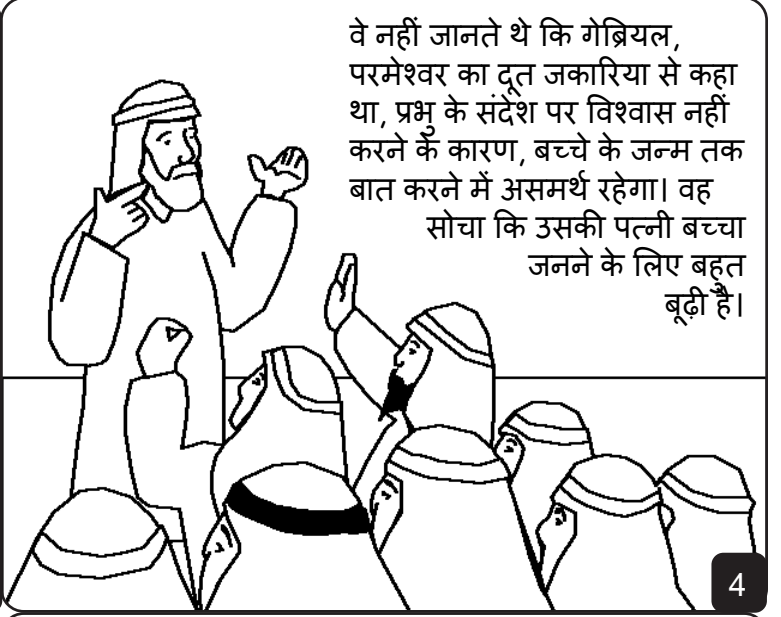 वे नहीं जानते थे कि गेब्रियल,
परमेश्वर का दूत जकारिया से कहा
था, प्रभु के संदेश पर विश्वास नहीं
करने के कारण, बच्चे के जन्म तक
बात करने में असमर्थ रहेगा। वह
सोचा कि उसकी पत्नी बच्चा
जनने के लिए बहुत
बूढ़ी है।
4